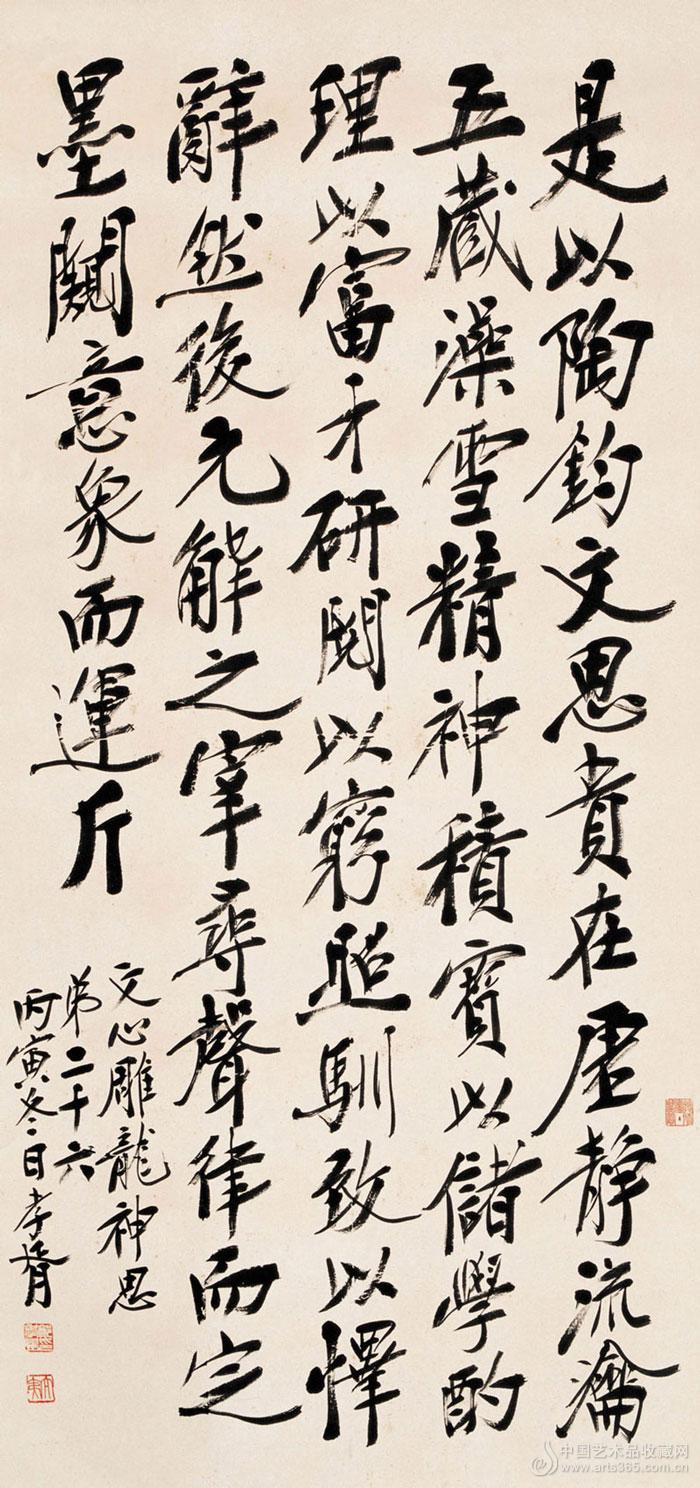 是以陶鈞文思貴在虛靜流瀹
五藏澡雪精神積寶以儲學酌
理以富才研閱以窮照馴致以懌
辭然後元解之宰尋聲律而定
墨闚意象而運斤
文心雕龍神思
弟二十六
丙寅冬日孝胥
中国艺术品收藏网
www.arts365.com.cn